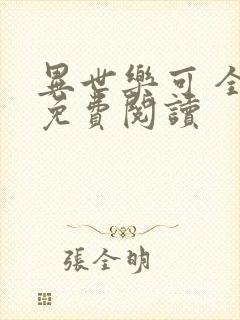 異世樂可 全
免費閱讀
張全明